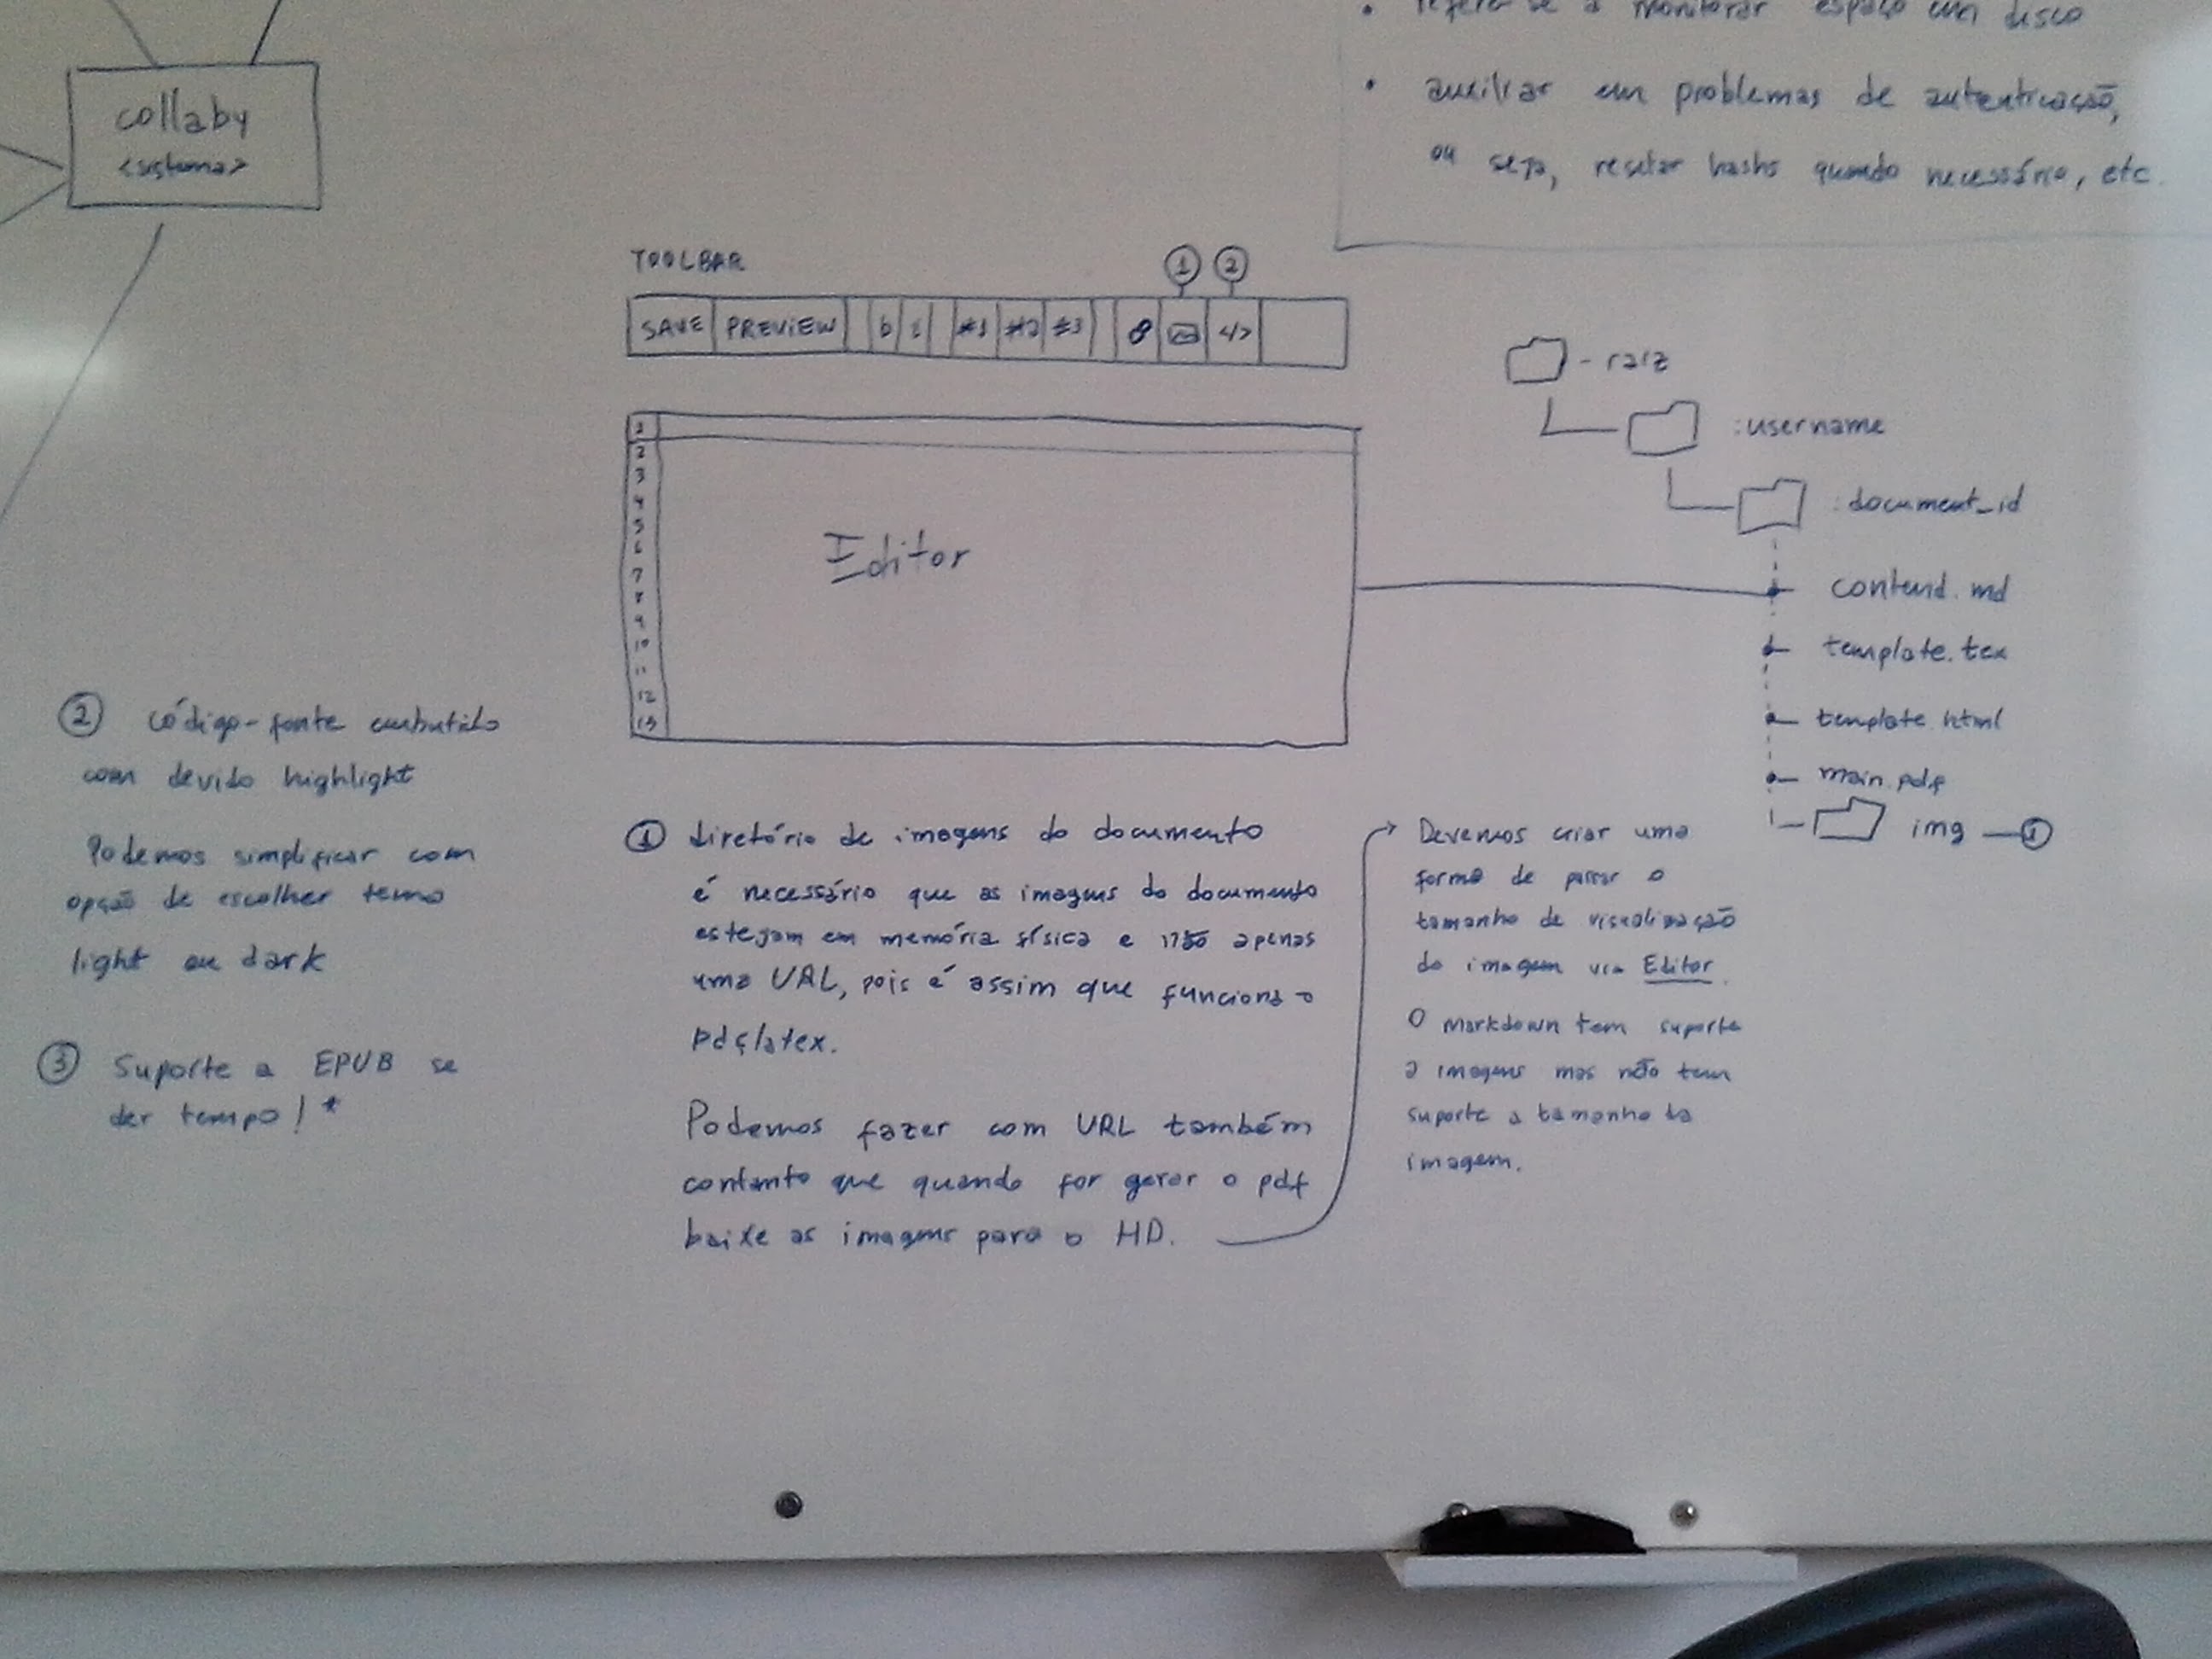 collaby
<sistema>
refere-se a monitorar espaço em disco
• auxiliar em problemas de autenticação,
ou seja, resetar hashs quando necessário, etc.
TOOLBAR
1 2
SAVE PREVIEW b i #1 #2 #3 </>
1
2
3
4
5
6
7
8
9
10
11
12
13
Editor
- raiz
:username
:document_id
contend.md
template.tex
template.html
main.pdf
img 1
2 código-fonte embutido
com devido highlight
Podemos simplificar com
opção de escolher tema
light ou dark
3 Suporte a EPUB se
der tempo! *
1 diretório de imagens do documento
é necessário que as imagens do documento
estejam em memória física e não apenas
uma URL, pois é assim que funciona o
pdflatex.
Podemos fazer com URL também
contanto que quando for gerar o pdf
baixe as imagens para o HD.
Devemos criar uma
forma de passar o
tamanho de visualização
da imagem via Editor.
O markdown tem suporte
a imagens mas não tem
suporte a tamanho da
imagem.